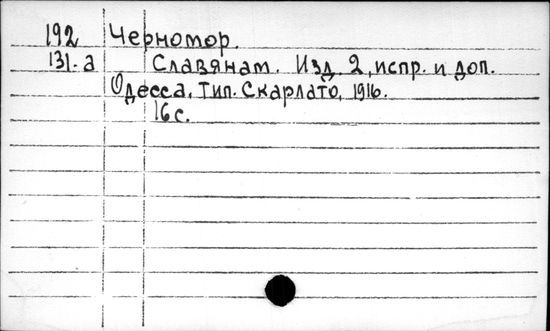 192 Черномор.
131-а Славянам. Изд. 2, испр. и доп.
Одесса, Тип. Скарлато, 1916.
16 с.